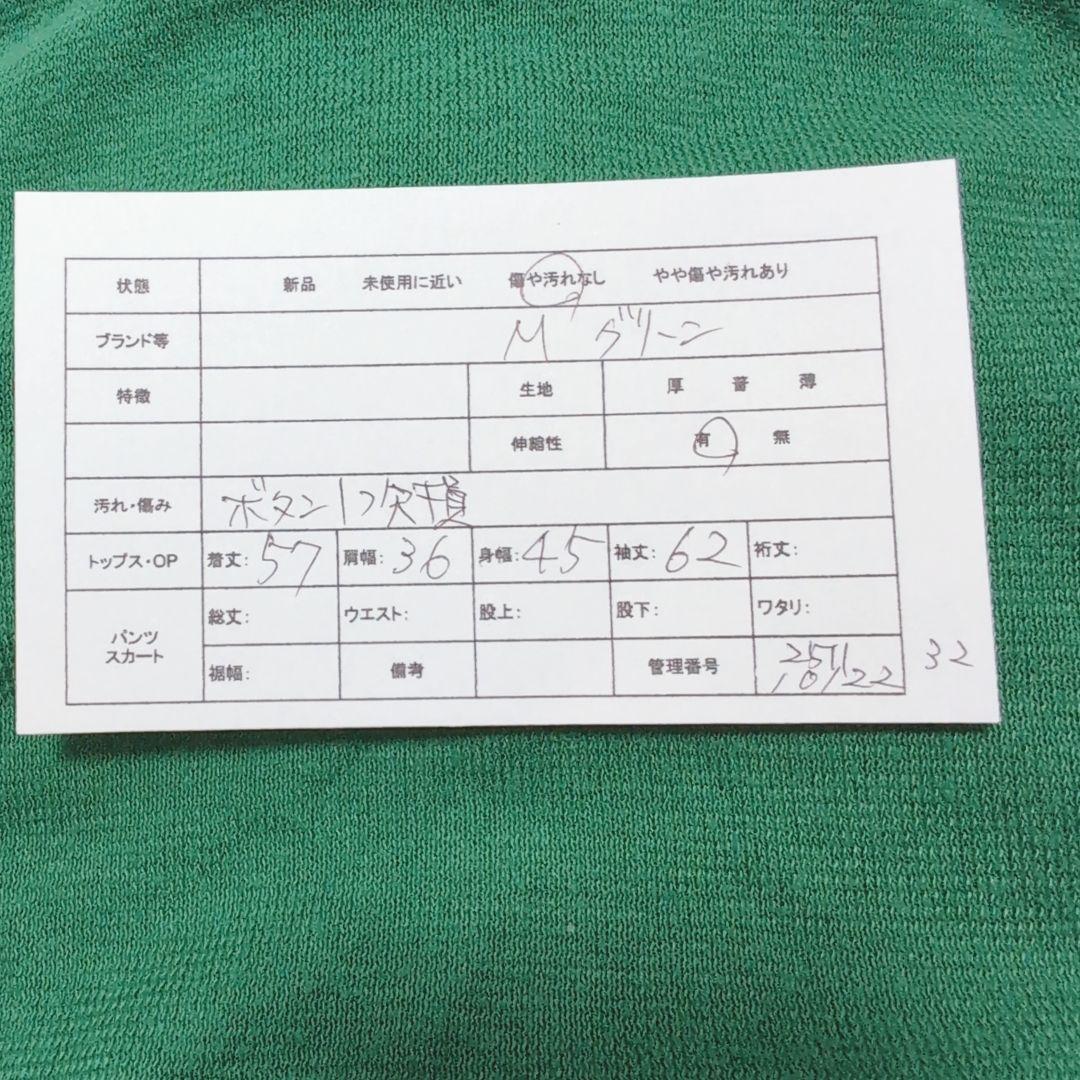 状態 新品 未使用に近い 傷や汚れなし やや傷や汚れあり
ブランド等 M グリーン
特徴 生地 厚 普 薄
伸縮性 有 無
汚れ・傷み ボタン1つ欠損
トップス・OP 着丈:57 肩幅:36 身幅:45 袖丈:62 裄丈:
パンツ スカート 総丈: ウエスト: 股上: 股下: ワタリ:
裾幅: 備考 管理番号 2511
10122 32